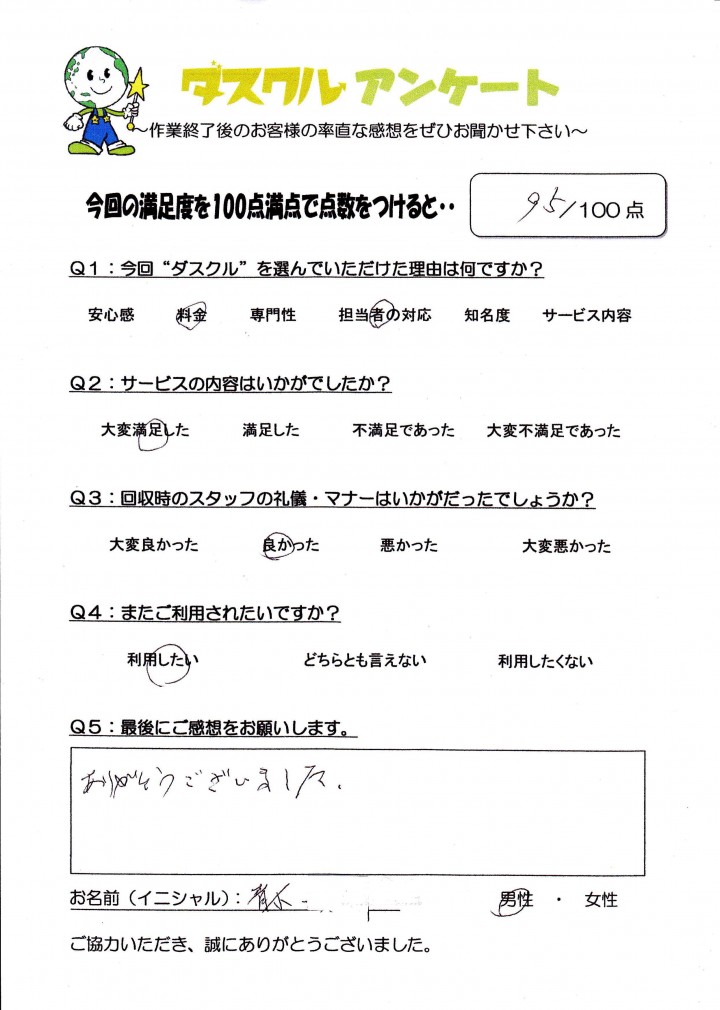 ダスクル アンケート
～作業終了後のお客様の率直な感想をぜひお聞かせ下さい～
今回の満足度を100点満点で点数をつけると‥
95/100点
Q1：今回“ダスクル”を選んでいただけた理由は何ですか？
安心感 料金 専門性 担当者の対応 知名度 サービス内容
Q2：サービスの内容はいかがでしたか？
大変満足した 満足した 不満足であった 大変不満足であった
Q3：回収時のスタッフの礼儀・マナーはいかがだったでしょうか？
大変良かった 良かった 悪かった 大変悪かった
Q4：またご利用されたいですか？
利用したい どちらとも言えない 利用したくない
Q5：最後にご感想をお願いします。
ありがとうございました。
お名前（イニシャル）： 男性 ・ 女性
ご協力いただき、誠にありがとうございました。